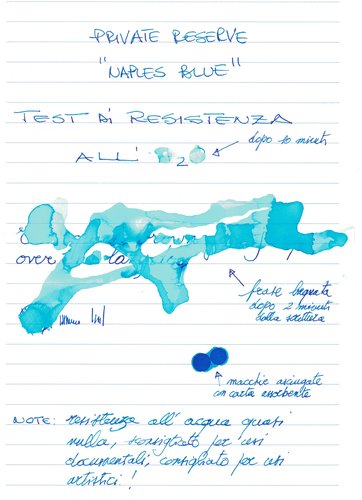 PRIVATE RESERVE
"NAPLES BLUE"
TEST DI RESISTENZA
ALL' H2O
dopo 10 minuti
over
frase bagnata
dopo 2 minuti
dalla scrittura
macchie asciugate
con carta assorbente
NOTE: resistenza all'acqua quasi
nulla, sconsigliato per usi
documentali, consigliato per usi
artistici!